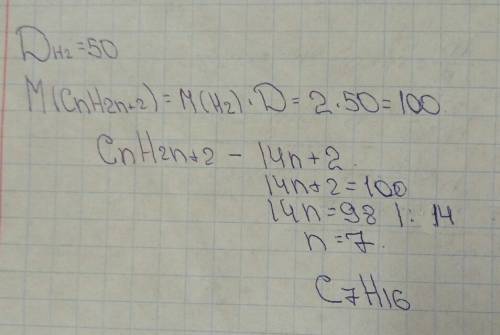 D H₂ = 50
M(CnH2n+2) = M(H2) · D = 2 · 50 = 100
CnH2n+2 – 14n+2.
14n+2 = 100
14n = 98 | : 14
n = 7.
C7H16